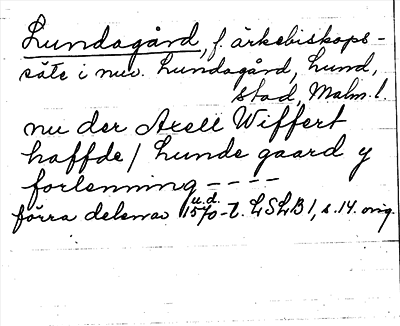 Lundagård, f. ärkebiskops-
säte i nuv. Lundagård, Lund,
stad, Malm. l.
nu der Axell Wiffert
haffde / Lunde gaard y
forlenning - - - -
u.d.
förra delen av 1570-t. LSLB 1, s. 14. orig.